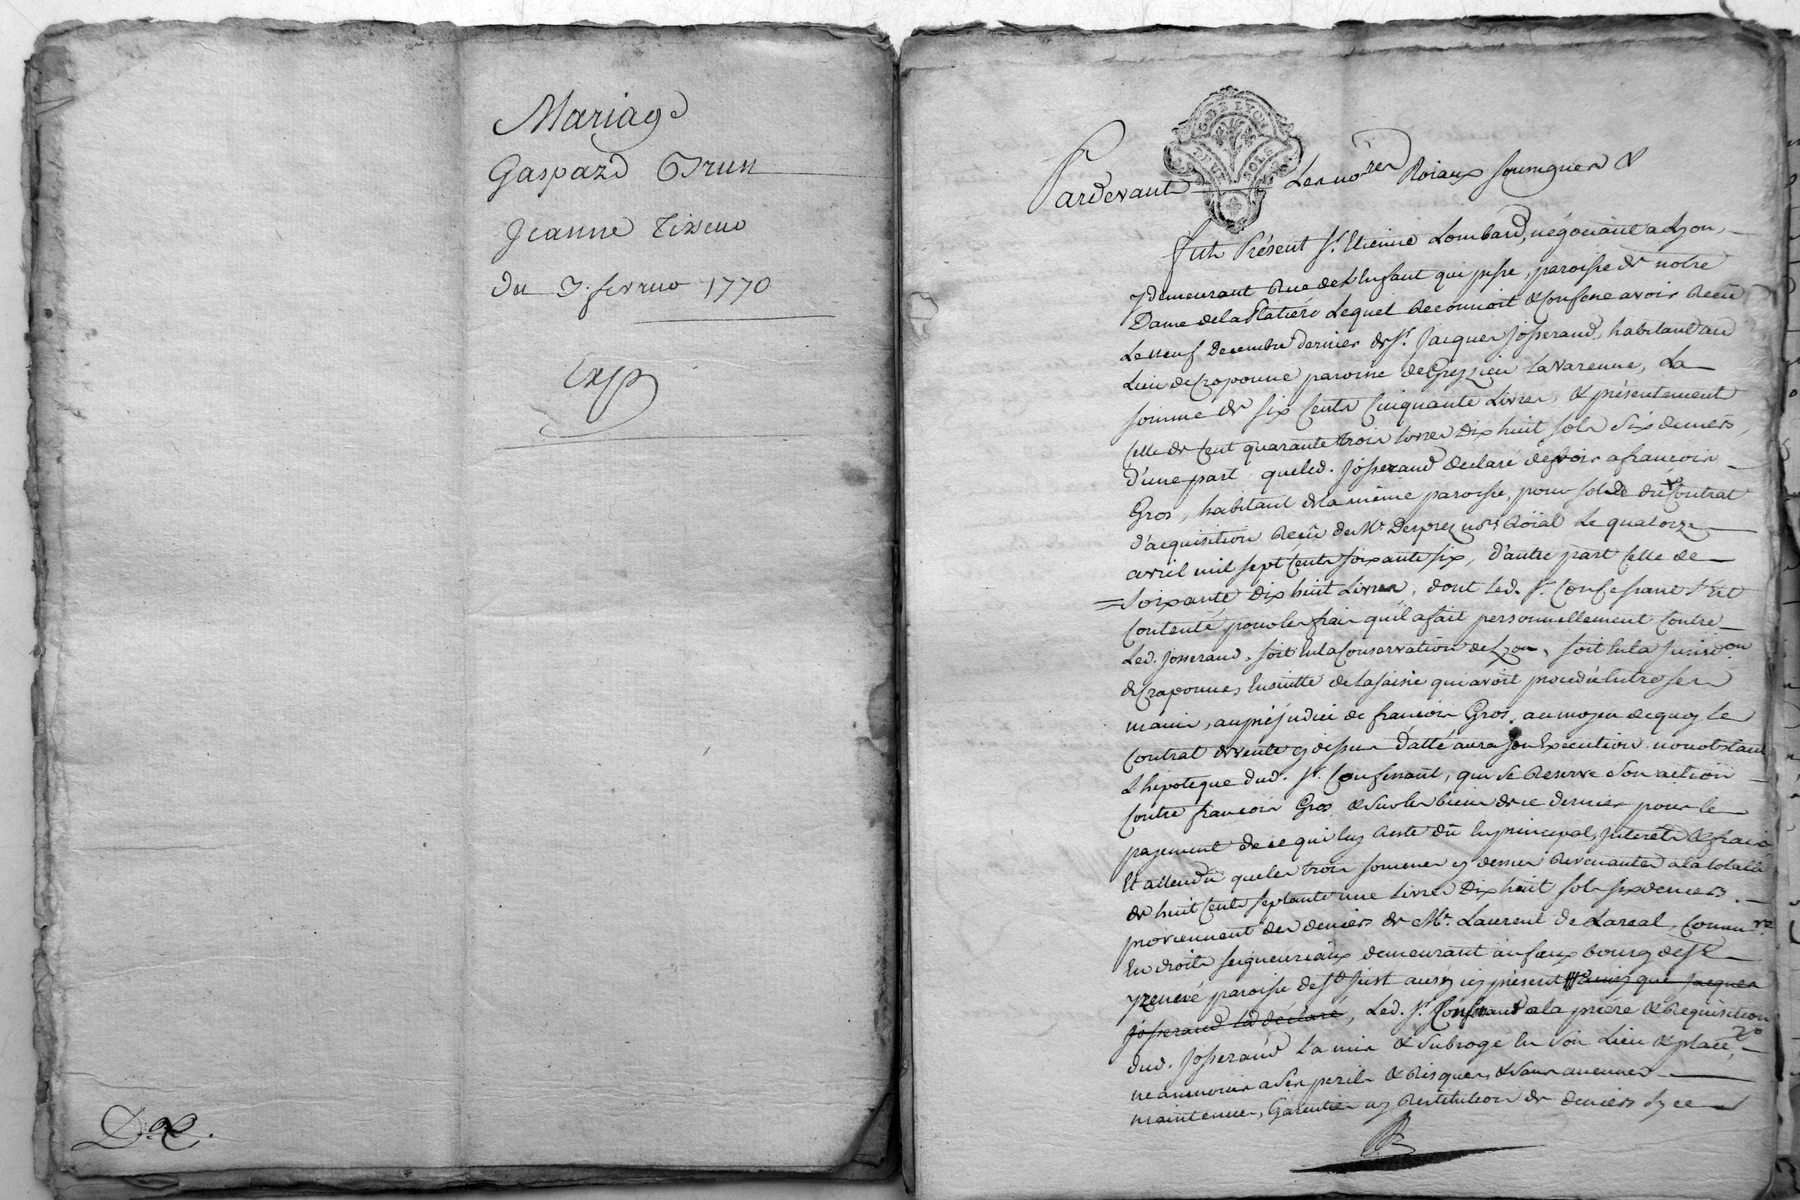 Mariage
Gaspard Brun
Jeanne
du 3. fevrier 1770
Exp
G. DE LYON
DEUX SOLS
Pardevant Les no.res Roiaux soussignés &
fut Présent Sr. Etienne Lombard, négociant a Lyon,
y demeurant Rue de L'Enfant qui pisse, paroisse de notre
Dame de la Platiere Lequel Reconnoit & confesse avoir Reçu
Le neuf Decembre dernier de Sr. Jacques Josserand, habitant au
Lieu de Craponne paroisse de Grezieu La Varenne, La
somme de six cents Cinquante Livres, & présentement
Celle de Cent quarante trois livres Dix huit sols six deniers,
d'une part, que led. Josserand declare devoir a francois
Gros, habitant de la même paroisse, pour solde du Contrat
d'acquisition Reçu de Me. Desprez no.re Roïal Le quatorze
avril mil sept Cents soixante six, d'autre part Celle de
soixante Dix huit Livres, dont led. Sr. Confessant s'est
Contenté pour les frais qu'il a fait personnellement Contre
Led. Josserand, soit en la Conservation de Lyon, soit en la Jurid.on
de Craponne, Ensuitte de la saisie qui avoit procedé entre ses
mains, au préjudice de francois Gros, au moyen de quoy Le
Contrat de vente cy dessus datté aura son Execution nonobstant
L'hipoteque dud. Sr. Confessant, qui se Reserve son action
Contre francois Gros, & sur les biens de ce dernier pour le
payement de ce qui luy Reste dû En principal, Interets & frais
Et attendu que les trois sommes cy dessus Revenantes a la totale
de huit Cents septante une livres Dix huit sols six deniers.
proviennent des deniers de Mr. Laurent de Lareal, Comm.re
En droits seigneuriaux demeurant au faux bourg de St.
yrenéé paroisse de St. Just aussy icy présent ainsy que Jacques
Josserand la déclaré, Led. Sr. Confessant a la prière & Requisition
dud. Josserand La mis & subrogé En son Lieu & place,
neanmoins a ses perils & Risques, & sans aucunes
maintenue, Garentie ny Restitution de deniers, & ce